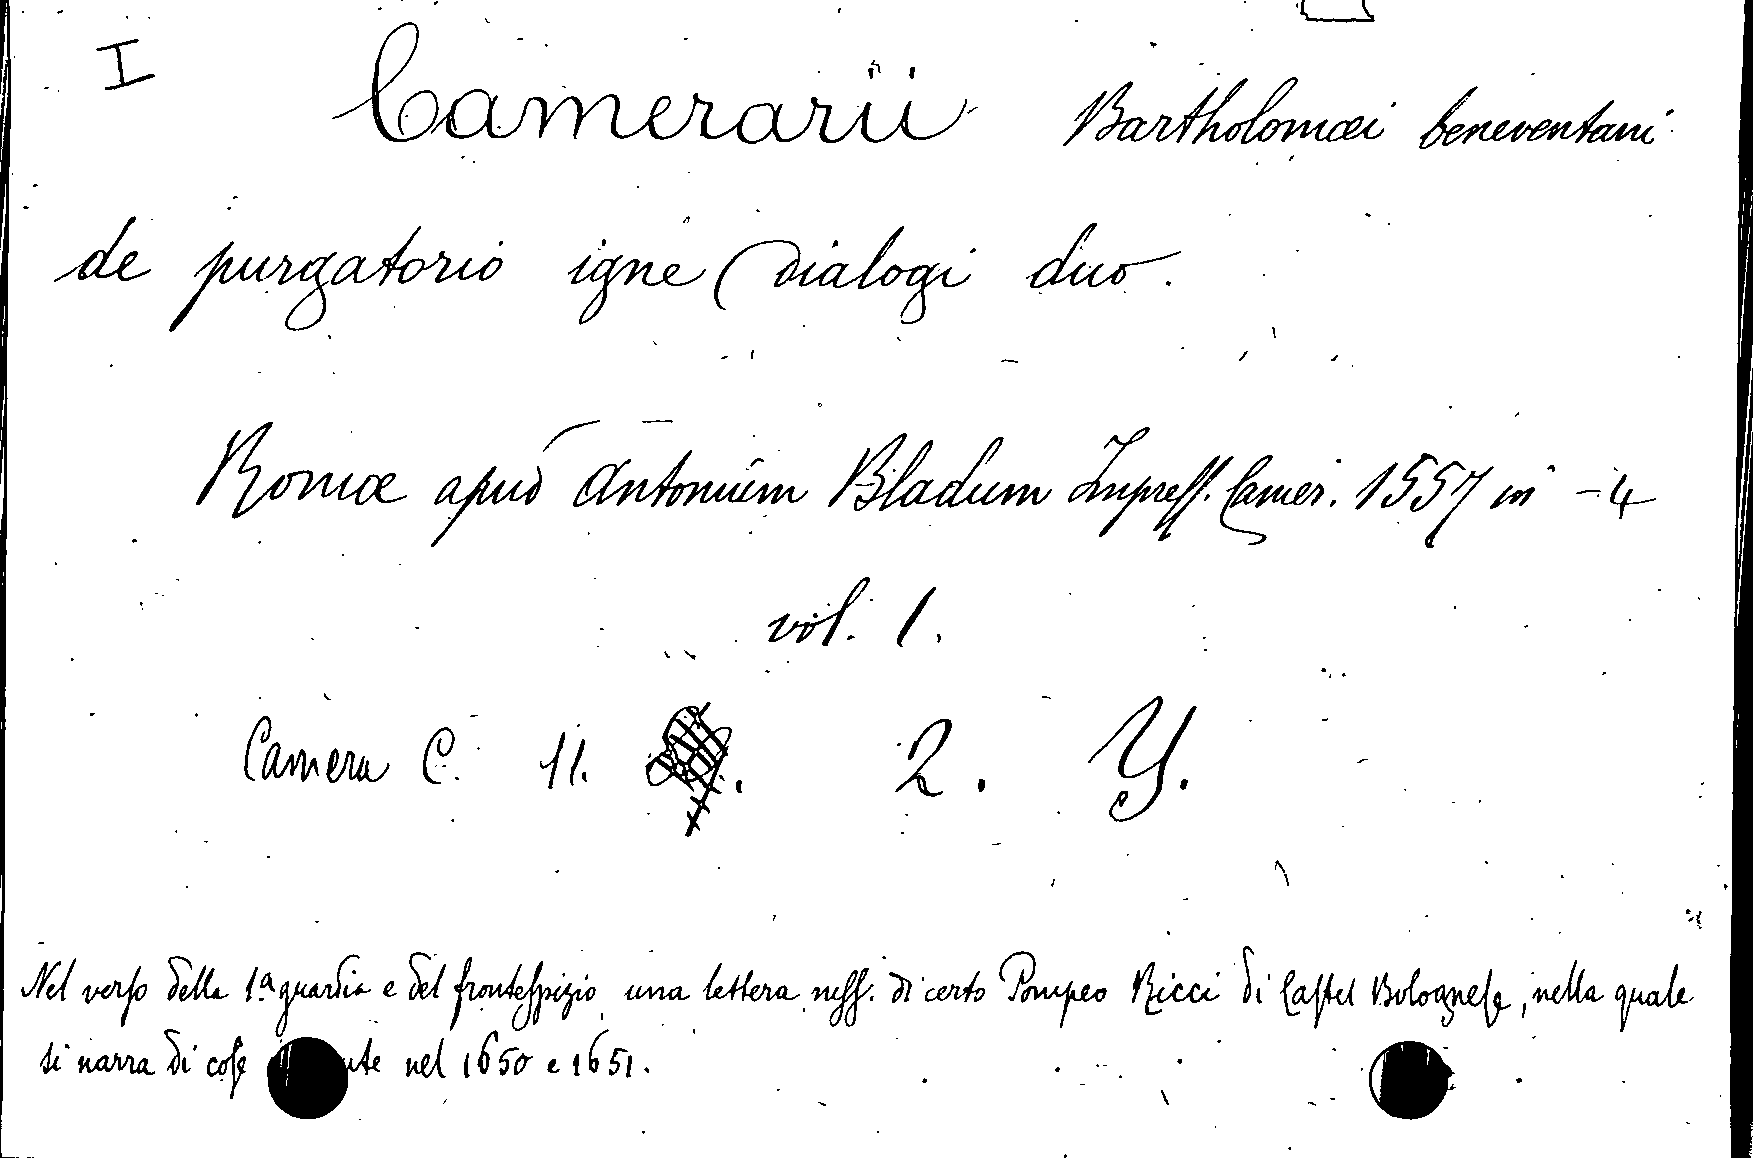 I
Camerarii Bartholomæi beneventani
de purgatorio igne dialogi duo.
Romæ apud Antonium Bladum Impreſſ. Camer. 1557 in -4
vol. 1.
Camera C. 11. 2. Y.
Nel verſo della 1ª guardia e del fronteſpizio una lettera mſſ. di certo Pompeo Ricci di Caſtel Bologneſe, nella quale
si narra di coſe nel 1650 e 1651.